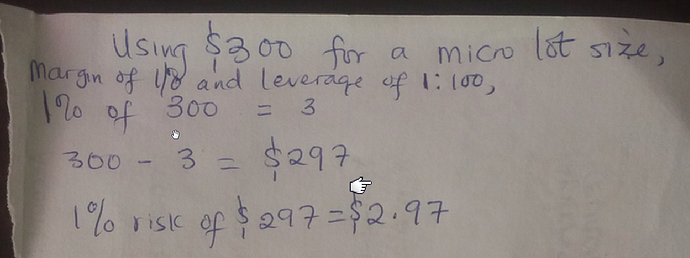 Using $300 for a micro lot size,
Margin of 1% and leverage of 1:100,
1% of 300 = 3
300 - 3 = $297
1% risk of $297 = $2.97